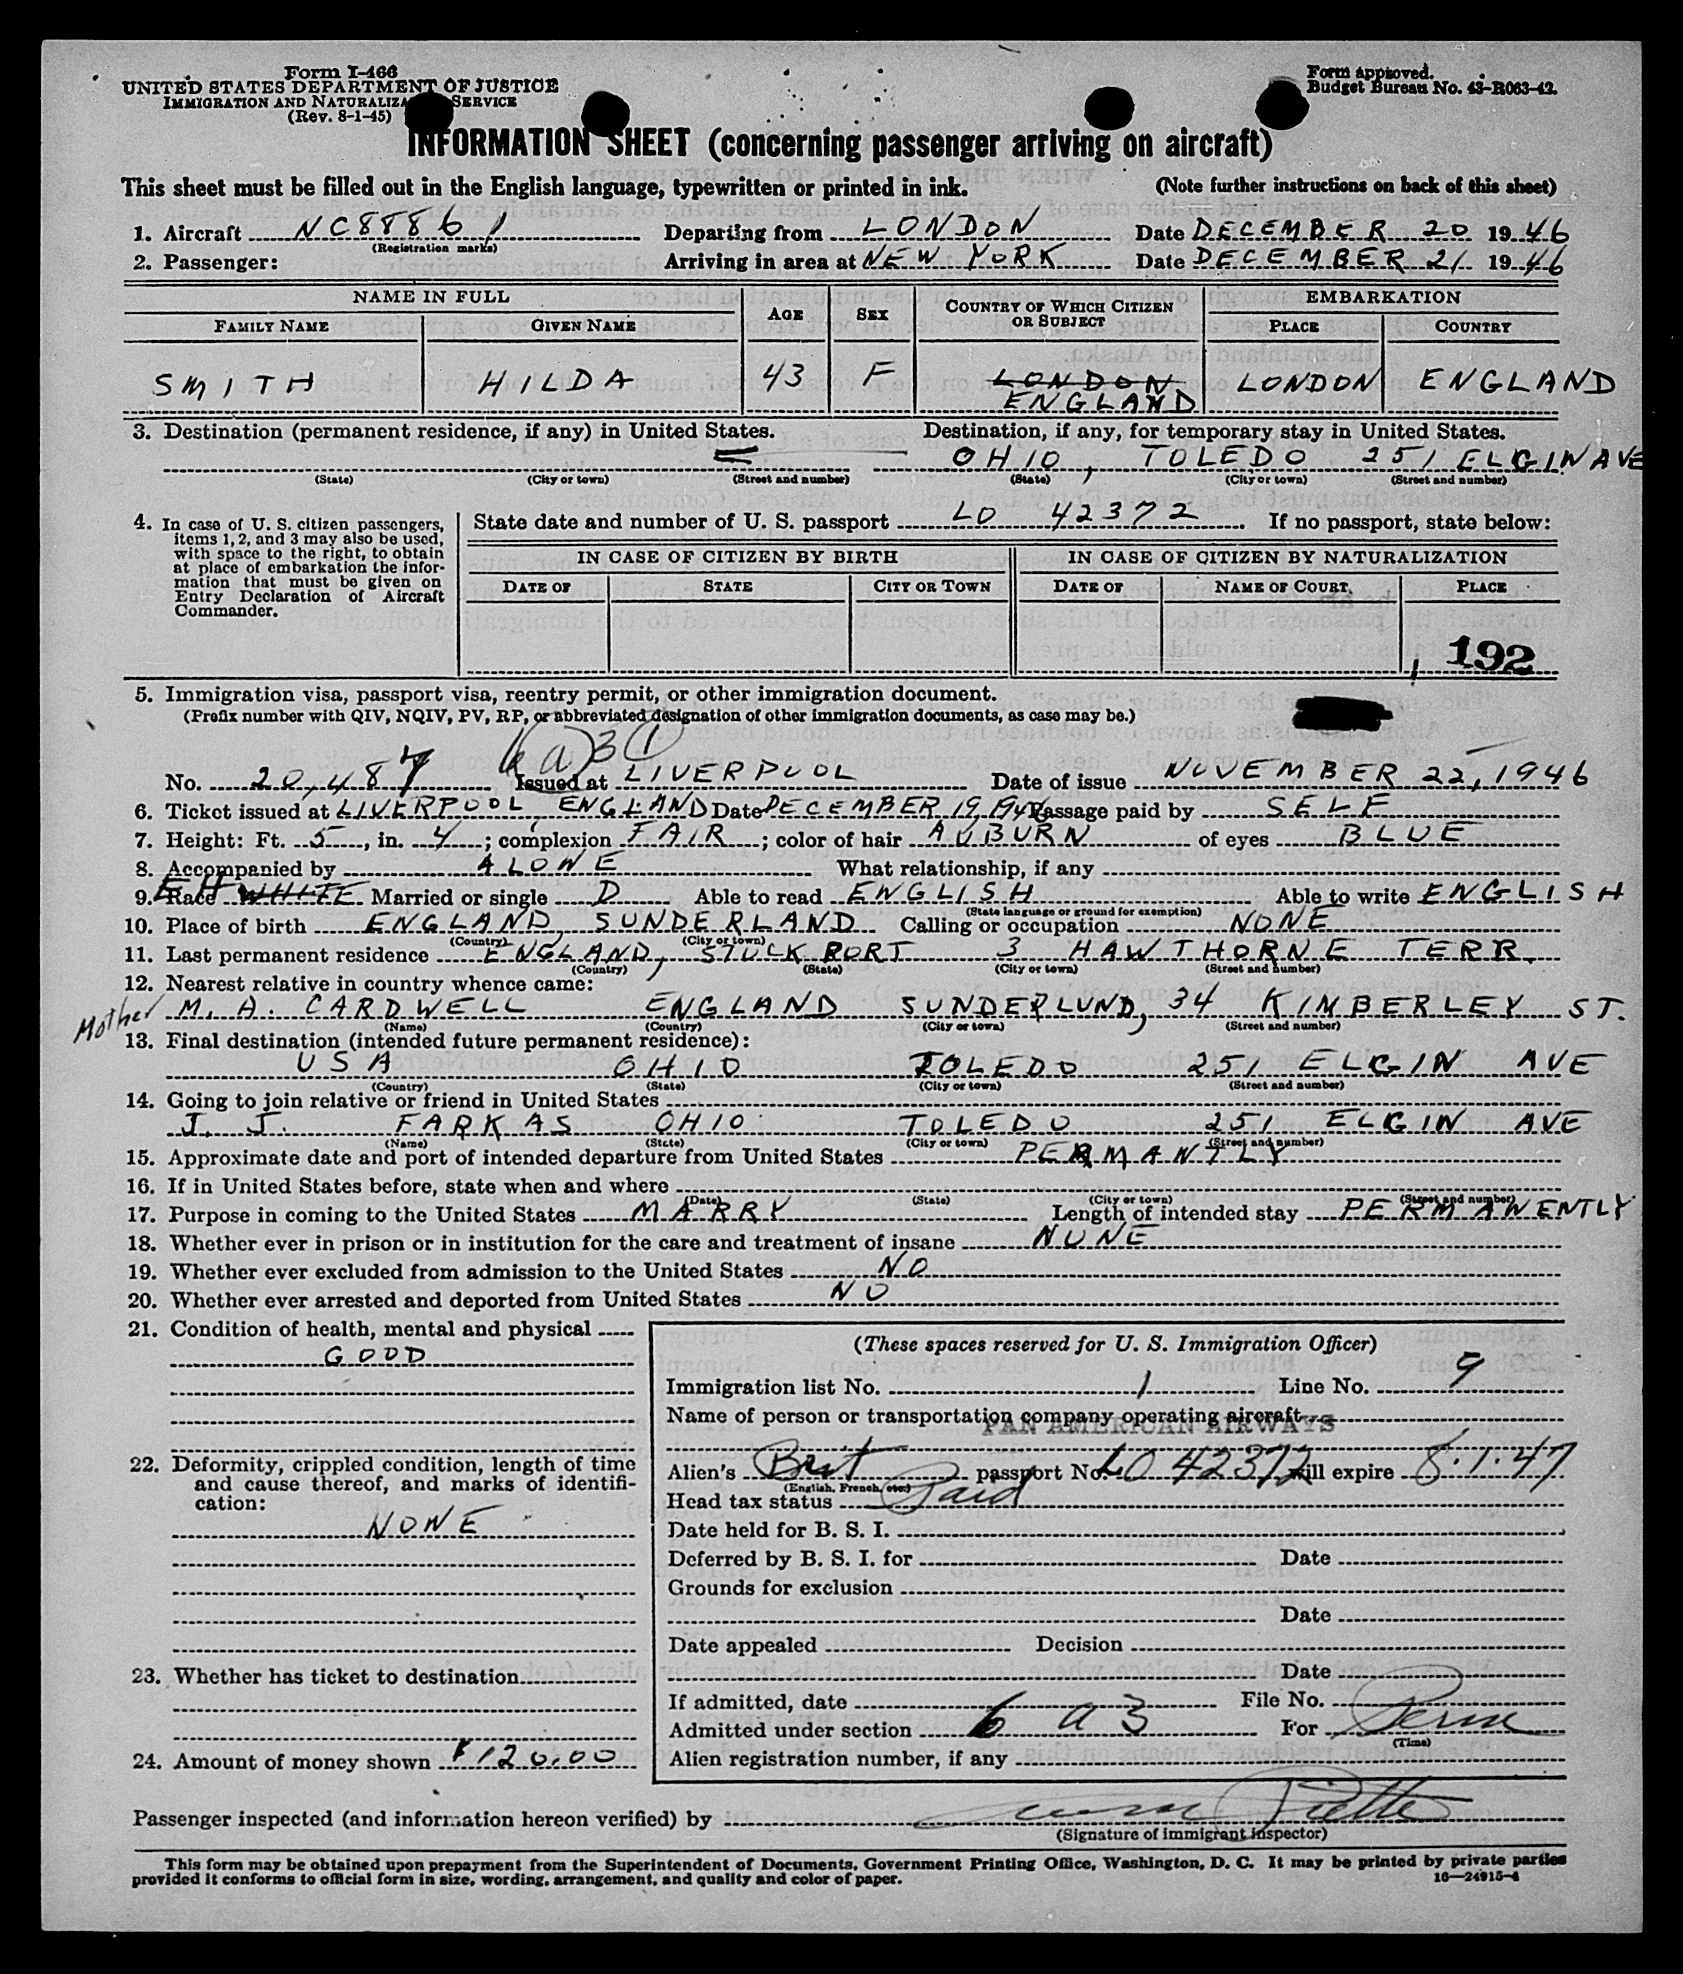 Form I-466
UNITED STATES DEPARTMENT OF JUSTICE
IMMIGRATION AND NATURALIZA SERVICE
(Rev. 8-1-45)
Form approved.
Budget Bureau No. 43-R063-42.
INFORMATION SHEET (concerning passenger arriving on aircraft)
This sheet must be filled out in the English language, typewritten or printed in ink. (Note further instructions on back of this sheet)
1. Aircraft NC88861 Departing from LONDON Date DECEMBER 20 1946
(Registration marks)
2. Passenger: Arriving in area at NEW YORK Date DECEMBER 21 1946
NAME IN FULL AGE SEX COUNTRY OF WHICH CITIZEN OR SUBJECT EMBARKATION
FAMILY NAME GIVEN NAME PLACE COUNTRY
SMITH HILDA 43 F LONDON ENGLAND LONDON ENGLAND
3. Destination (permanent residence, if any) in United States. Destination, if any, for temporary stay in United States.
OHIO, TOLEDO 251 ELGIN AVE
(State) (City or town) (Street and number) (State) (City or town) (Street and number)
4. In case of U. S. citizen passengers, items 1, 2, and 3 may also be used, with space to the right, to obtain at place of embarkation the information that must be given on Entry Declaration of Aircraft Commander.
State date and number of U. S. passport LO 42372 If no passport, state below:
IN CASE OF CITIZEN BY BIRTH IN CASE OF CITIZEN BY NATURALIZATION
DATE OF STATE CITY OR TOWN DATE OF NAME OF COURT PLACE
192
5. Immigration visa, passport visa, reentry permit, or other immigration document.
(Prefix number with QIV, NQIV, PV, RP, or abbreviated designation of other immigration documents, as case may be.)
6 a 3 1
No. 20,487 Issued at LIVERPOOL Date of issue NOVEMBER 22, 1946
6. Ticket issued at LIVERPOOL, ENGLAND Date DECEMBER 19, 1946 Passage paid by SELF
7. Height: Ft. 5, in. 4; complexion FAIR; color of hair AUBURN of eyes BLUE
8. Accompanied by ALONE What relationship, if any
9. Race WHITE Married or single D Able to read ENGLISH Able to write ENGLISH
(State language or ground for exemption)
10. Place of birth ENGLAND, SUNDERLAND Calling or occupation NONE
(Country) (City or town)
11. Last permanent residence ENGLAND, STOCKPORT 3 HAWTHORNE TERR.
(Country) (State) (City or town) (Street and number)
12. Nearest relative in country whence came:
Mother M. A. CARDWELL ENGLAND SUNDERLUND, 34 KIMBERLEY ST.
(Name) (Country) (City or town) (Street and number)
13. Final destination (intended future permanent residence):
USA OHIO TOLEDO 251 ELGIN AVE
(Country) (State) (City or town) (Street and number)
14. Going to join relative or friend in United States
J. J. FARKAS OHIO TOLEDO 251 ELGIN AVE
(Name) (State) (City or town) (Street and number)
15. Approximate date and port of intended departure from United States PERMANTLY
16. If in United States before, state when and where
(Date) (State) (City or town) (Street and number)
17. Purpose in coming to the United States MARRY Length of intended stay PERMANENTLY
18. Whether ever in prison or in institution for the care and treatment of insane NONE
19. Whether ever excluded from admission to the United States NO
20. Whether ever arrested and deported from United States NO
21. Condition of health, mental and physical
GOOD
22. Deformity, crippled condition, length of time and cause thereof, and marks of identification:
NONE
23. Whether has ticket to destination
24. Amount of money shown $120.00
(These spaces reserved for U. S. Immigration Officer)
Immigration list No. 1 Line No. 9
Name of person or transportation company operating aircraft
PAN AMERICAN AIRWAYS
Alien's Brit passport No. LO 42372 will expire 8.1.47
(English, French, etc.)
Head tax status Paid
Date held for B. S. I.
Deferred by B. S. I. for Date
Grounds for exclusion
Date
Date appealed Decision
Date
If admitted, date File No.
Admitted under section 6 a 3 For Perm
(Time)
Alien registration number, if any
Passenger inspected (and information hereon verified) by
(Signature of immigrant inspector)
This form may be obtained upon prepayment from the Superintendent of Documents, Government Printing Office, Washington, D. C. It may be printed by private parties
provided it conforms to official form in size, wording, arrangement, and quality and color of paper. 16—24915-4